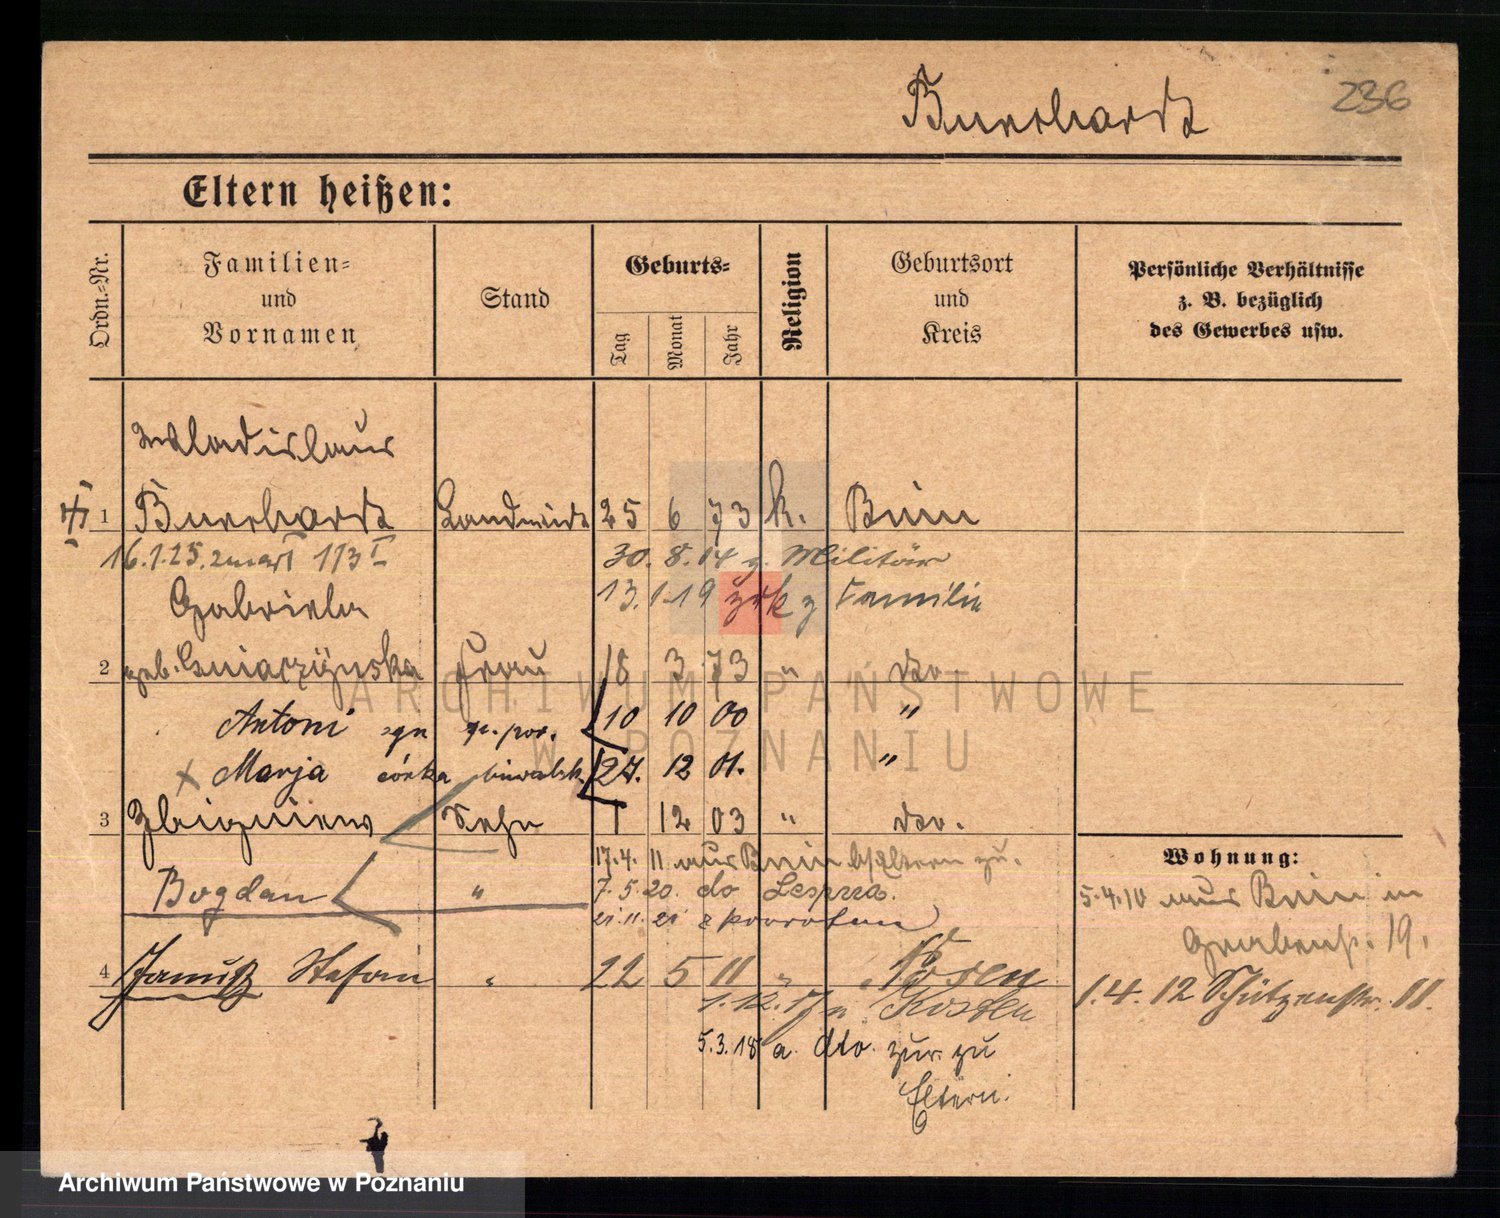 236
Burchardt
Eltern heißen:
Ordn.-Nr.
Familien- und Vornamen
Stand
Geburts-
Tag
Monat
Jahr
Religion
Geburtsort und Kreis
Persönliche Verhältnisse z. B. bezüglich des Gewerbes usw.
Wladislaus
1 Burchardt Landwirth 25 6 73 k. Bnin
16.1.25. zmarł 113 I 30. 8. 14 z. Militär
Gabriela 13. 1. 19 z Familie
2 geb. Gniaczyńska Frau 18 3 73 " do
Antoni syn 10 10 00 "
Marja córka 27. 12 01. "
3 Zbigniew Sohn 1 12 03 " do.
17.4. 11 aus Bnin Eltern zu.
Bogdan " 7. 5. 20. do
21. 11. 21 z powrotem
4 Janusz Stefan " 22 5 11 " Posen
1. 12. 17 n Kosten
5. 3. 18 a. dto. zur. zu
Eltern.
Wohnung:
5.4.10 aus Bnin in
Grabenstr. 19.
1. 4. 12 Schützenstr. 11.
ARCHIWUM PAŃSTWOWE
W POZNANIU
Archiwum Państwowe w Poznaniu